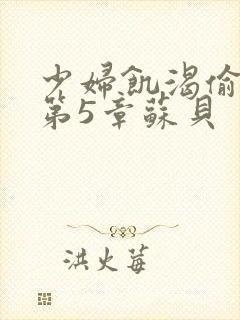 少婦飢渴偷
第5章蘇貝
洪火莓